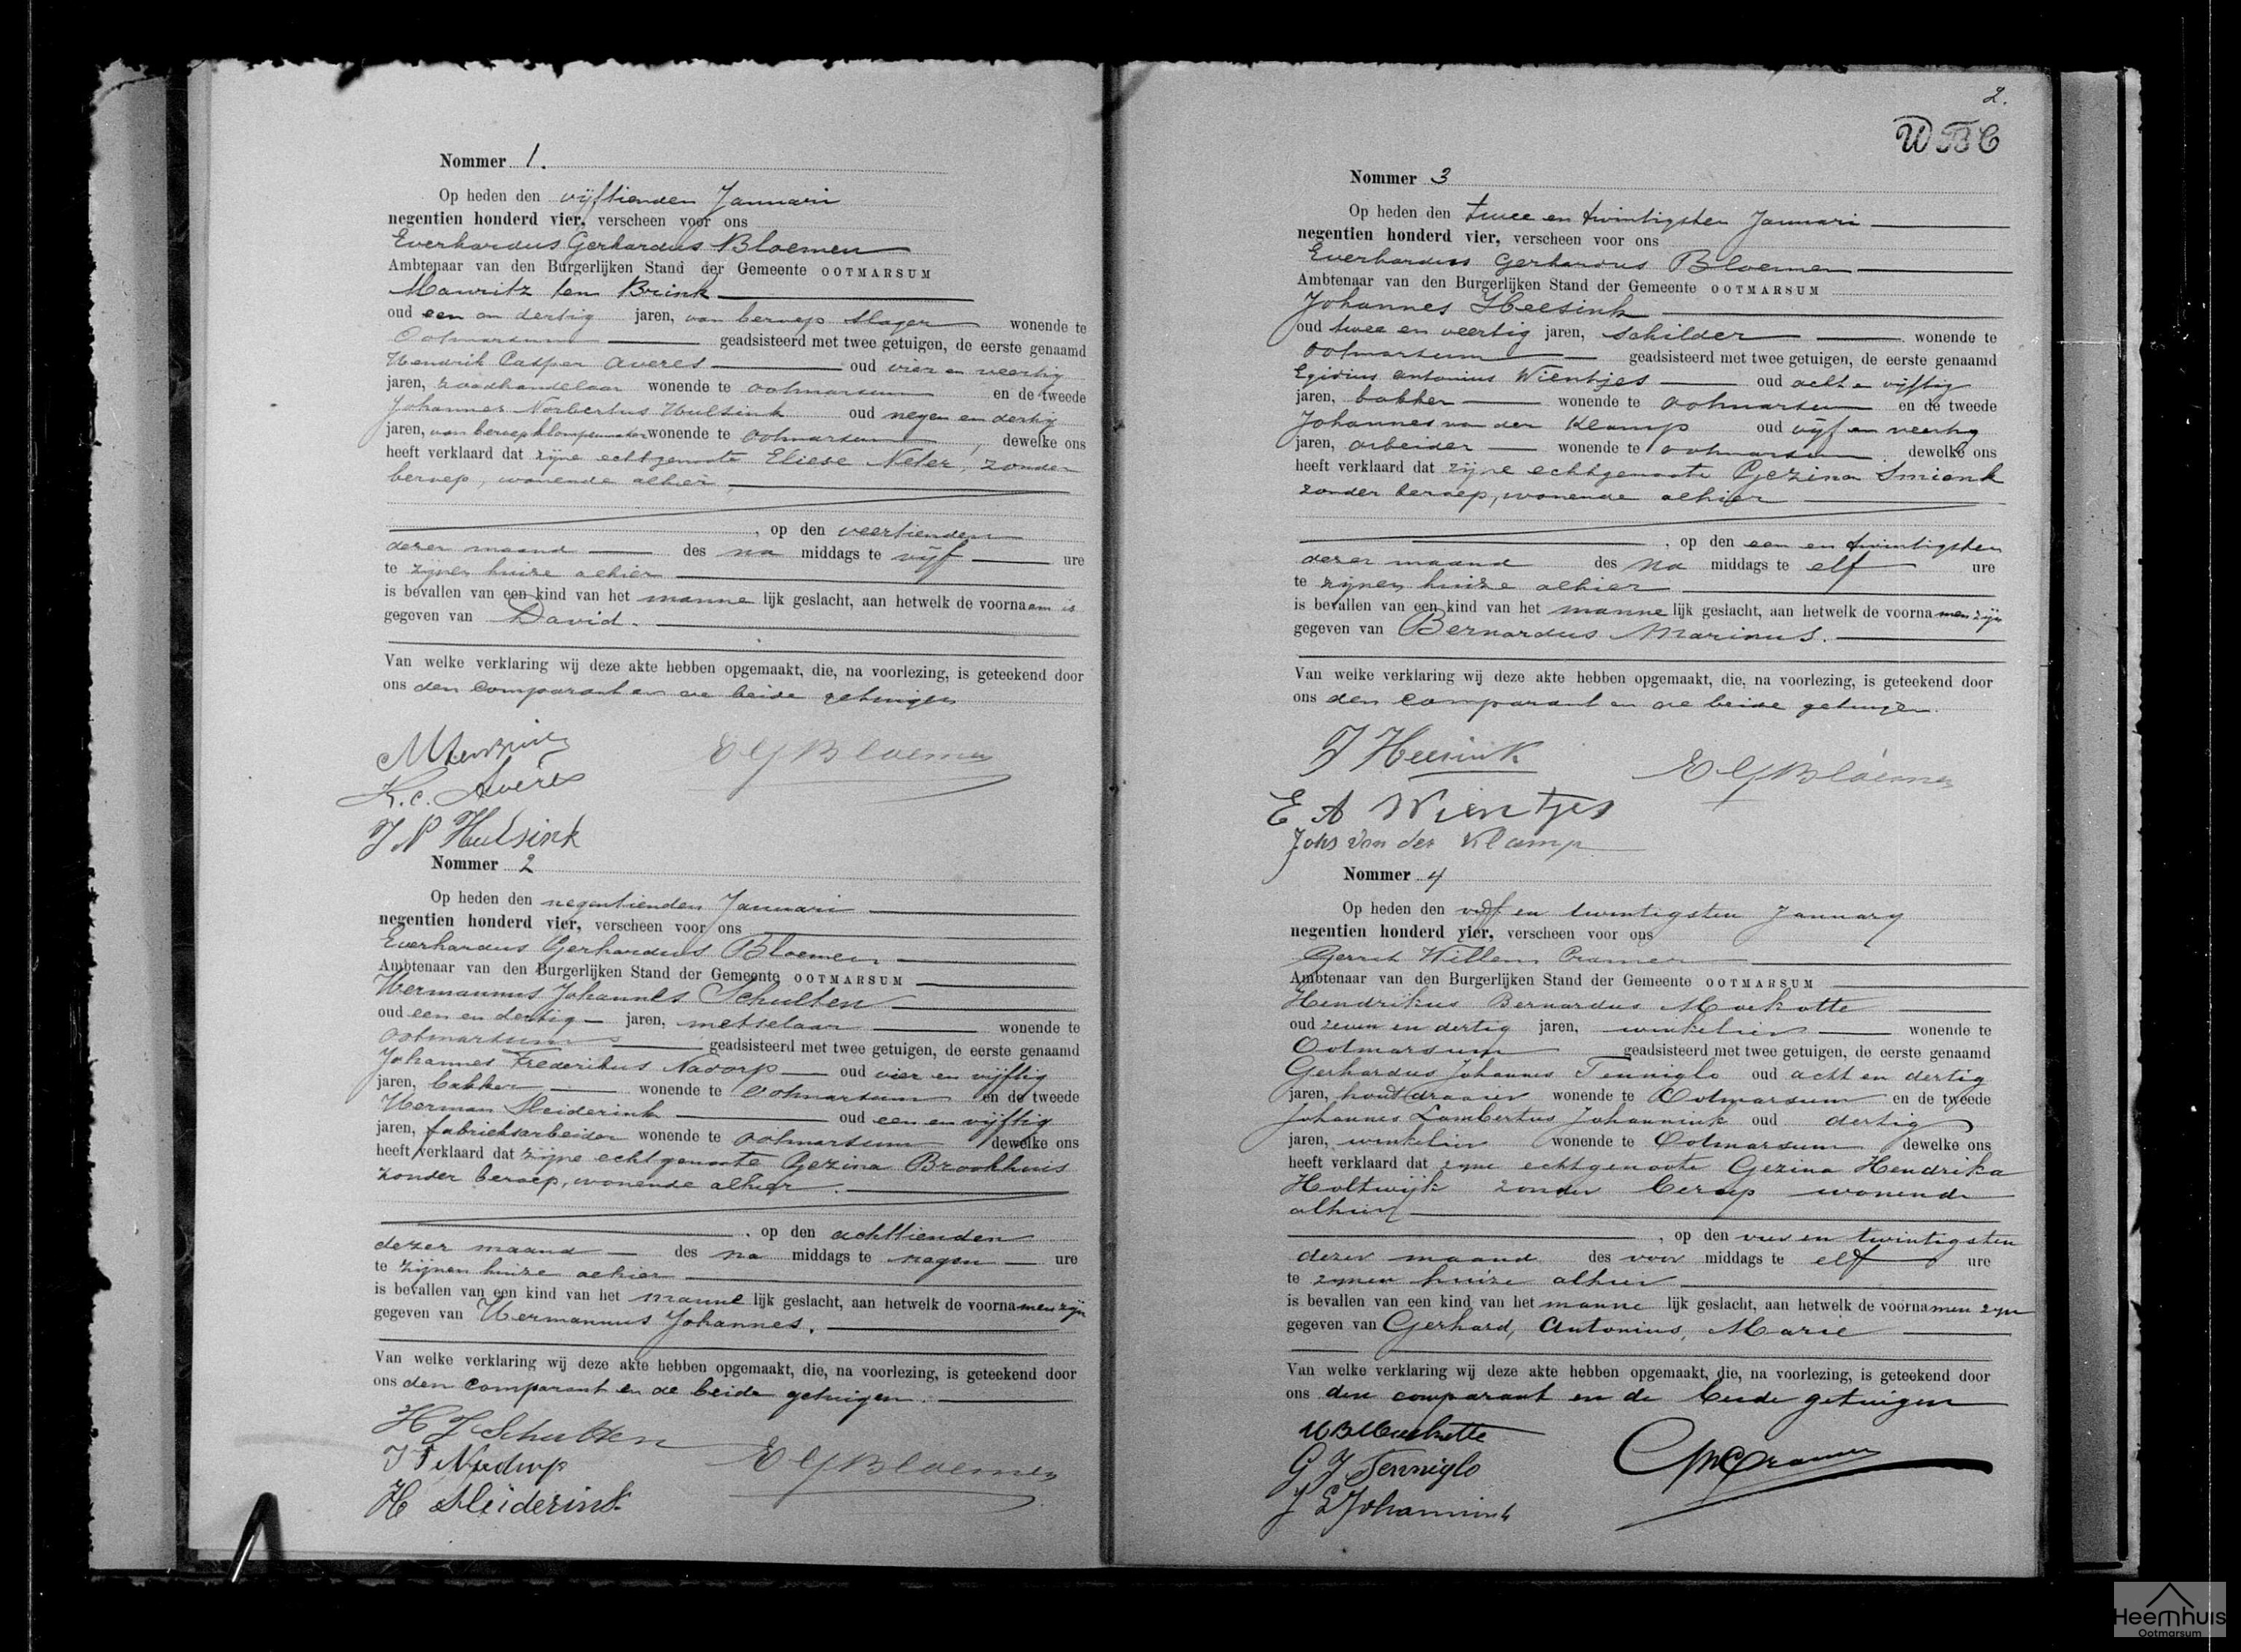 Nommer 1.
Op heden den vijftienden Januari
negentien honderd vier, verscheen voor ons
Everhardus Gerhardus Bloemen
Ambtenaar van den Burgerlijken Stand der Gemeente OOTMARSUM
Mauritz ten Brink
oud een en dertig jaren, van beroep slager wonende te
Ootmarsum geadsisteerd met twee getuigen, de eerste genaamd
Hendrik Casper Averes oud vier en veertig
jaren, zaadhandelaar wonende te Ootmarsum en de tweede
Johannes Norbertus Hulsink oud negen en dertig
jaren, van beroep klompenmaker wonende te Ootmarsum, dewelke ons
heeft verklaard dat zijne echtgenoote Eliese Neter, zonder
beroep, wonende alhier,
, op den veertienden
dezer maand des na middags te vijf ure
te zijnen huize alhier
is bevallen van een kind van het manne lijk geslacht, aan hetwelk de voornaem is
gegeven van David.
Van welke verklaring wij deze akte hebben opgemaakt, die, na voorlezing, is geteekend door
ons den comparant en de beide getuigen
EGBloemen
H.C. Averes
J N Hulsink
Nommer 2
Op heden den negentienden Januari
negentien honderd vier, verscheen voor ons
Everhardus Gerhardus Bloemen
Ambtenaar van den Burgerlijken Stand der Gemeente OOTMARSUM
Hermannus Johannes Schulten
oud een en dertig jaren, metselaar wonende te
Ootmarsum geadsisteerd met twee getuigen, de eerste genaamd
Johannes Frederikus Nadorp oud vier en vijftig
jaren, bakker wonende te Ootmarsum en de tweede
Herman Sleiderink oud een en vijftig
jaren, fabrieksarbeider wonende te Ootmarsum dewelke ons
heeft verklaard dat zijne echtgenoote Gezina Brookhuis
zonder beroep, wonende alhier.
, op den achttienden
dezer maand des na middags te negen ure
te zijnen huize alhier
is bevallen van een kind van het manne lijk geslacht, aan hetwelk de voornamen zijn
gegeven van Hermannus Johannes.
Van welke verklaring wij deze akte hebben opgemaakt, die, na voorlezing, is geteekend door
ons den comparant en de beide getuigen.
H J Schulten
J F Nadorp
EGBloemen
H Sleiderink
2.
WBC
Nommer 3
Op heden den twee en twintigsten Januari
negentien honderd vier, verscheen voor ons
Everhardus Gerhardus Bloemen
Ambtenaar van den Burgerlijken Stand der Gemeente OOTMARSUM
Johannes Heesink
oud twee en veertig jaren, schilder wonende te
Ootmarsum geadsisteerd met twee getuigen, de eerste genaamd
Egidius Antonius Wientjes oud acht en vijftig
jaren, bakker wonende te Ootmarsum en de tweede
Johannes van der Klamp oud vijf en veertig
jaren, arbeider wonende te Ootmarsum dewelke ons
heeft verklaard dat zijne echtgenoote Gezina Smienk
zonder beroep, wonende alhier
, op den een en twintigsten
dezer maand des na middags te elf ure
te zijnen huize alhier
is bevallen van een kind van het manne lijk geslacht, aan hetwelk de voornamen zijn
gegeven van Bernardus Marinus.
Van welke verklaring wij deze akte hebben opgemaakt, die, na voorlezing, is geteekend door
ons den comparant en de beide getuigen.
J Heesink
EGBloemen
E A Wientjes
Johs van der Klamp
Nommer 4
Op heden den vijf en twintigsten January
negentien honderd vier, verscheen voor ons
Gerrit Willem Cramer
Ambtenaar van den Burgerlijken Stand der Gemeente OOTMARSUM
Hendrikus Bernardus Moekotte
oud zeven en dertig jaren, winkelier wonende te
Ootmarsum geadsisteerd met twee getuigen, de eerste genaamd
Gerhardus Johannes Tenniglo oud acht en dertig
jaren, houtdraaier wonende te Ootmarsum en de tweede
Johannes Lambertus Johannink oud dertig
jaren, winkelier wonende te Ootmarsum dewelke ons
heeft verklaard dat zijne echtgenoote Gezina Hendrika
Holtwijk zonder beroep wonende
alhier
, op den vier en twintigsten
dezer maand des voor middags te elf ure
te zijnen huize alhier
is bevallen van een kind van het manne lijk geslacht, aan hetwelk de voornamen zijn
gegeven van Gerhard, Antonius, Marie
Van welke verklaring wij deze akte hebben opgemaakt, die, na voorlezing, is geteekend door
ons den comparant en de beide getuigen
HBMoekotte
GWCramer
G J Tenniglo
J L Johannink
Heemhuis
Ootmarsum